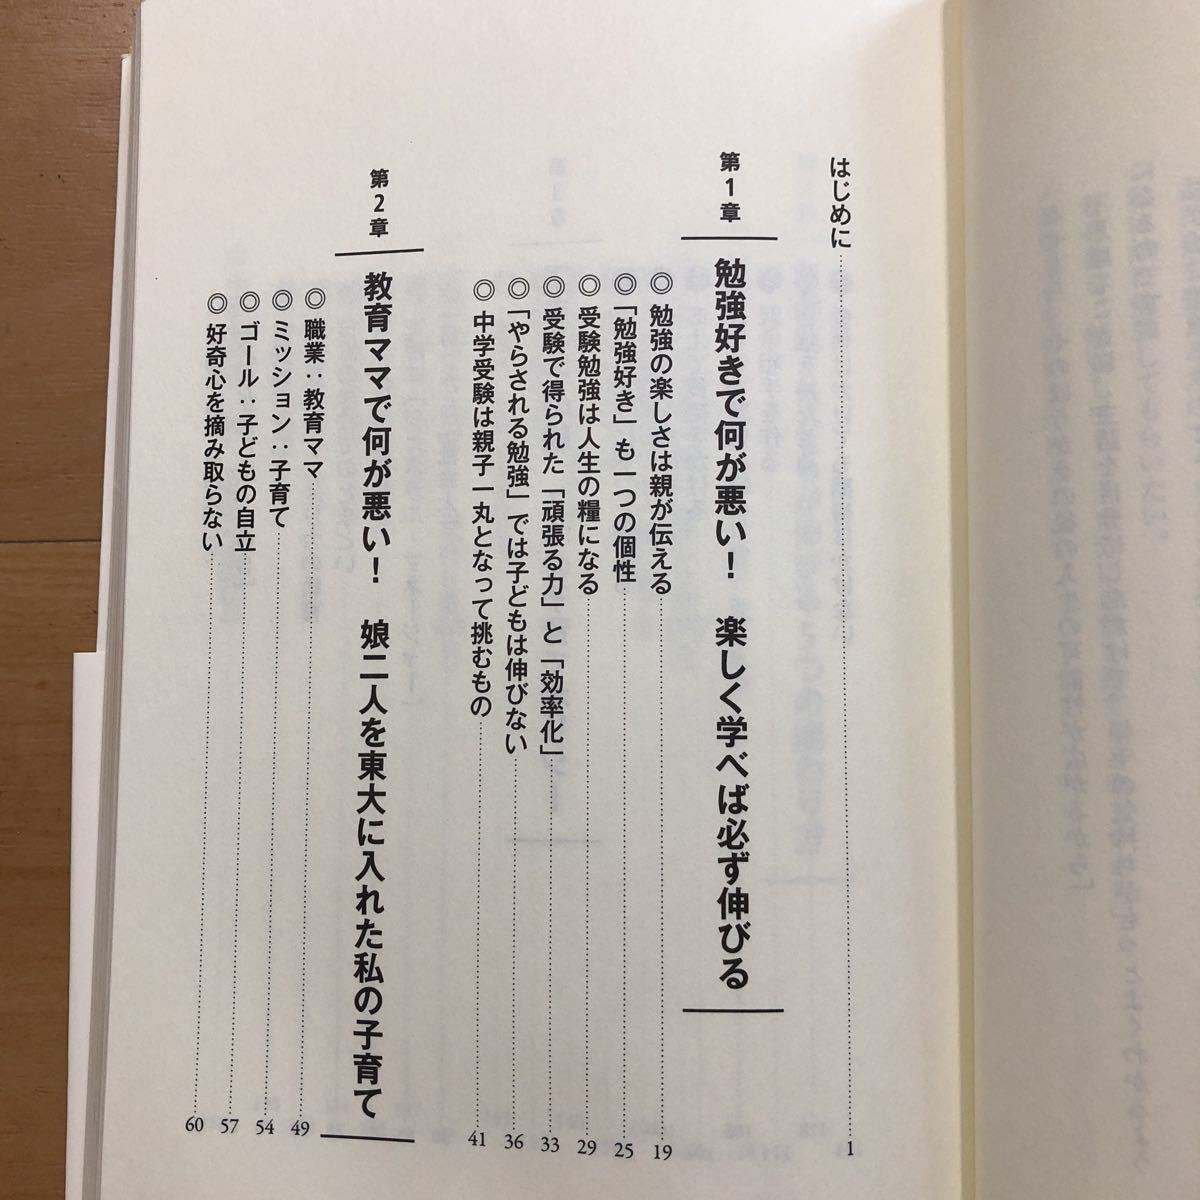 はじめに 1
第1章 勉強好きで何が悪い！ 楽しく学べば必ず伸びる
◎勉強の楽しさは親が伝える 19
◎「勉強好き」も一つの個性 25
◎受験勉強は人生の糧になる 29
◎受験で得られた「頑張る力」と「効率化」 33
◎「やらされる勉強」では子どもは伸びない 36
◎中学受験は親子一丸となって挑むもの 41
第2章 教育ママで何が悪い！ 娘二人を東大に入れた私の子育て
◎職業：教育ママ 49
◎ミッション：子育て 54
◎ゴール：子どもの自立 57
◎好奇心を摘み取らない 60